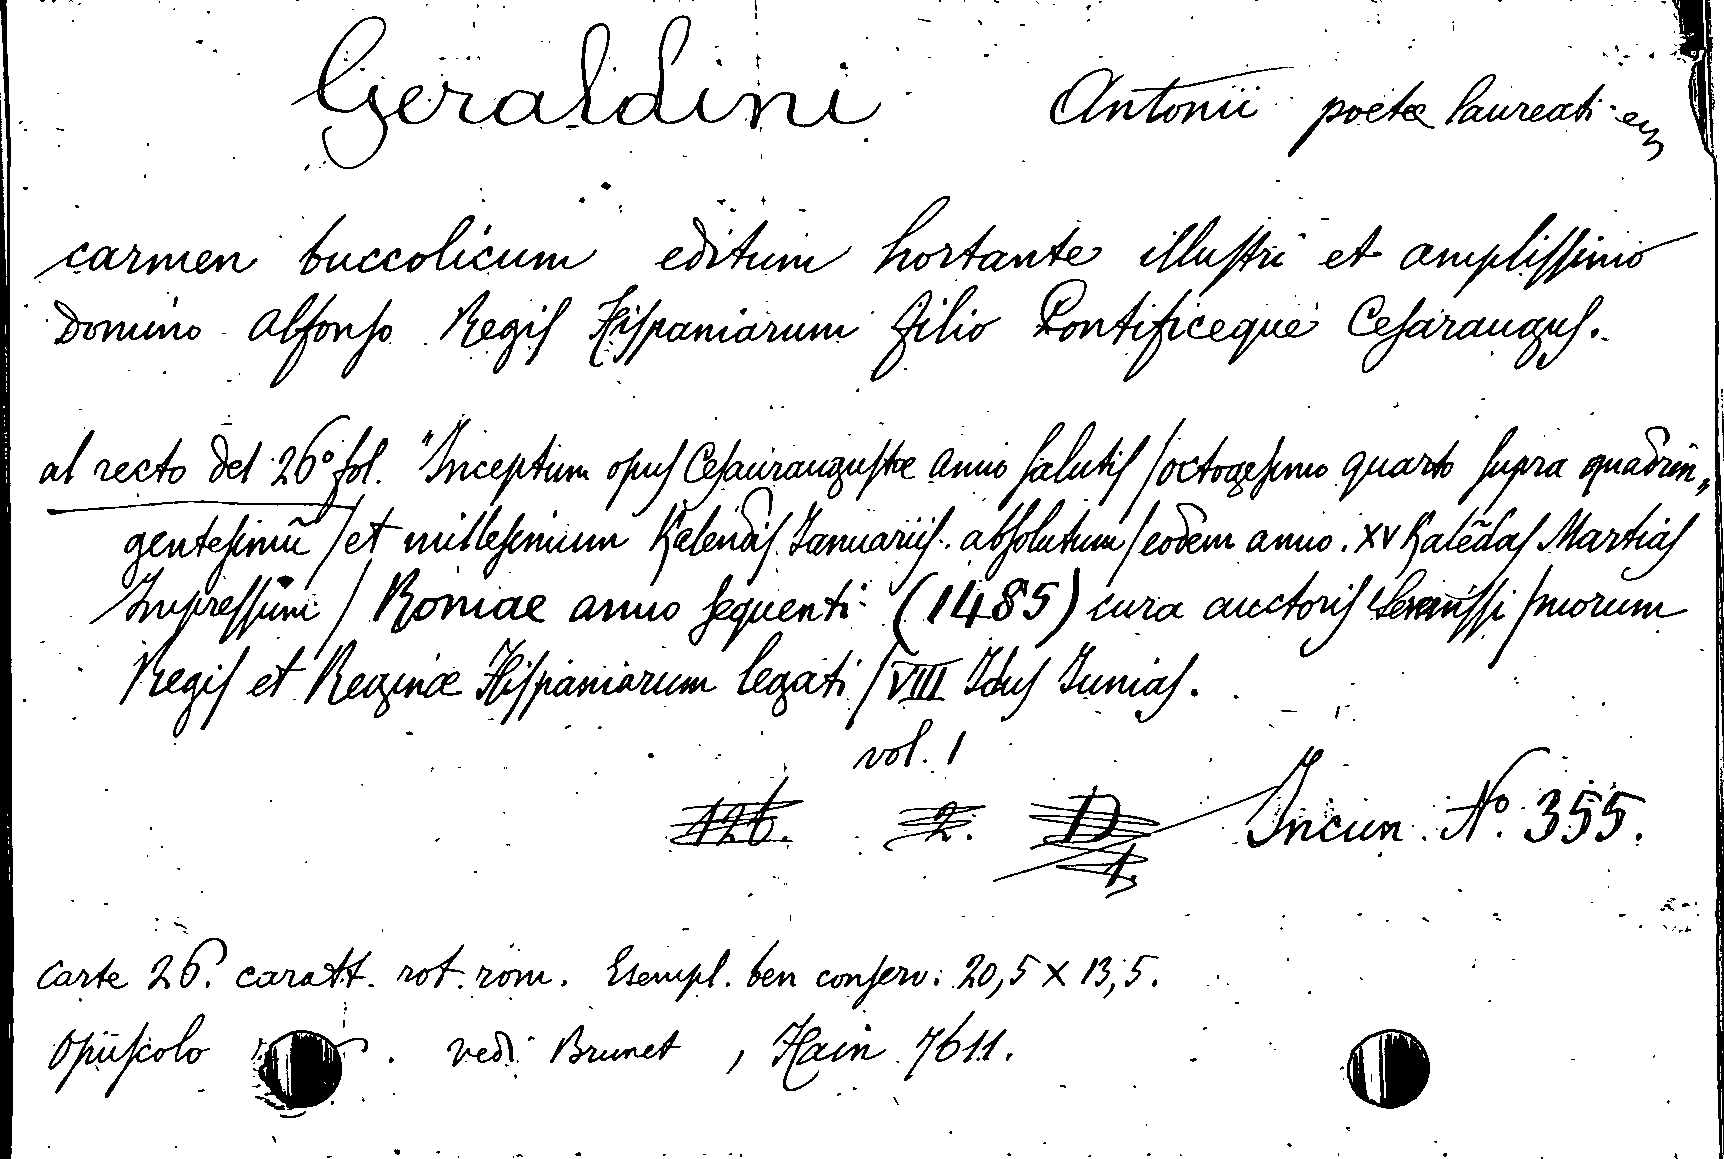 Geraldini Antonii poetæ laureati
carmen buccolicum editum hortante illuſtri et ampliſſimo
Domino Alfonſo Regiſ Hiſpaniarum filio Pontificeque Ceſarauguſ.
al recto del 26º fol. "Inceptum opuſ Ceſaurauguſtæ anno ſalutiſ / octogeſimo quarto ſupra quadrin„
genteſimū / et milleſimum Kalendiſ Januariis. abſolutum / eodem anno. XV Kalēdaſ Martiaſ
Impreſſum / Romae anno ſequenti (1485) cura auctoriſ / morum
Regiſ et Reginæ Hiſpaniarum legati / VIII Iduſ Juniaſ.
vol. 1
126. 2. D Incun. Nº. 355.
1.
Carte 26. caratt. rot. rom. Esempl. ben conſerv: 20,5 X 13,5.
Opuſcolo . vedi Brunet , Hain 7611.